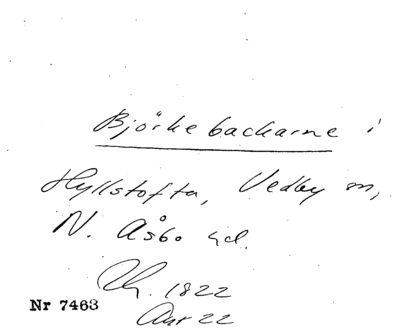 Björkebackarne i
Hyllstofta, Vedby sn,
N. Åsbo hd.
Th. 1822
Nr 7463
Akt 22